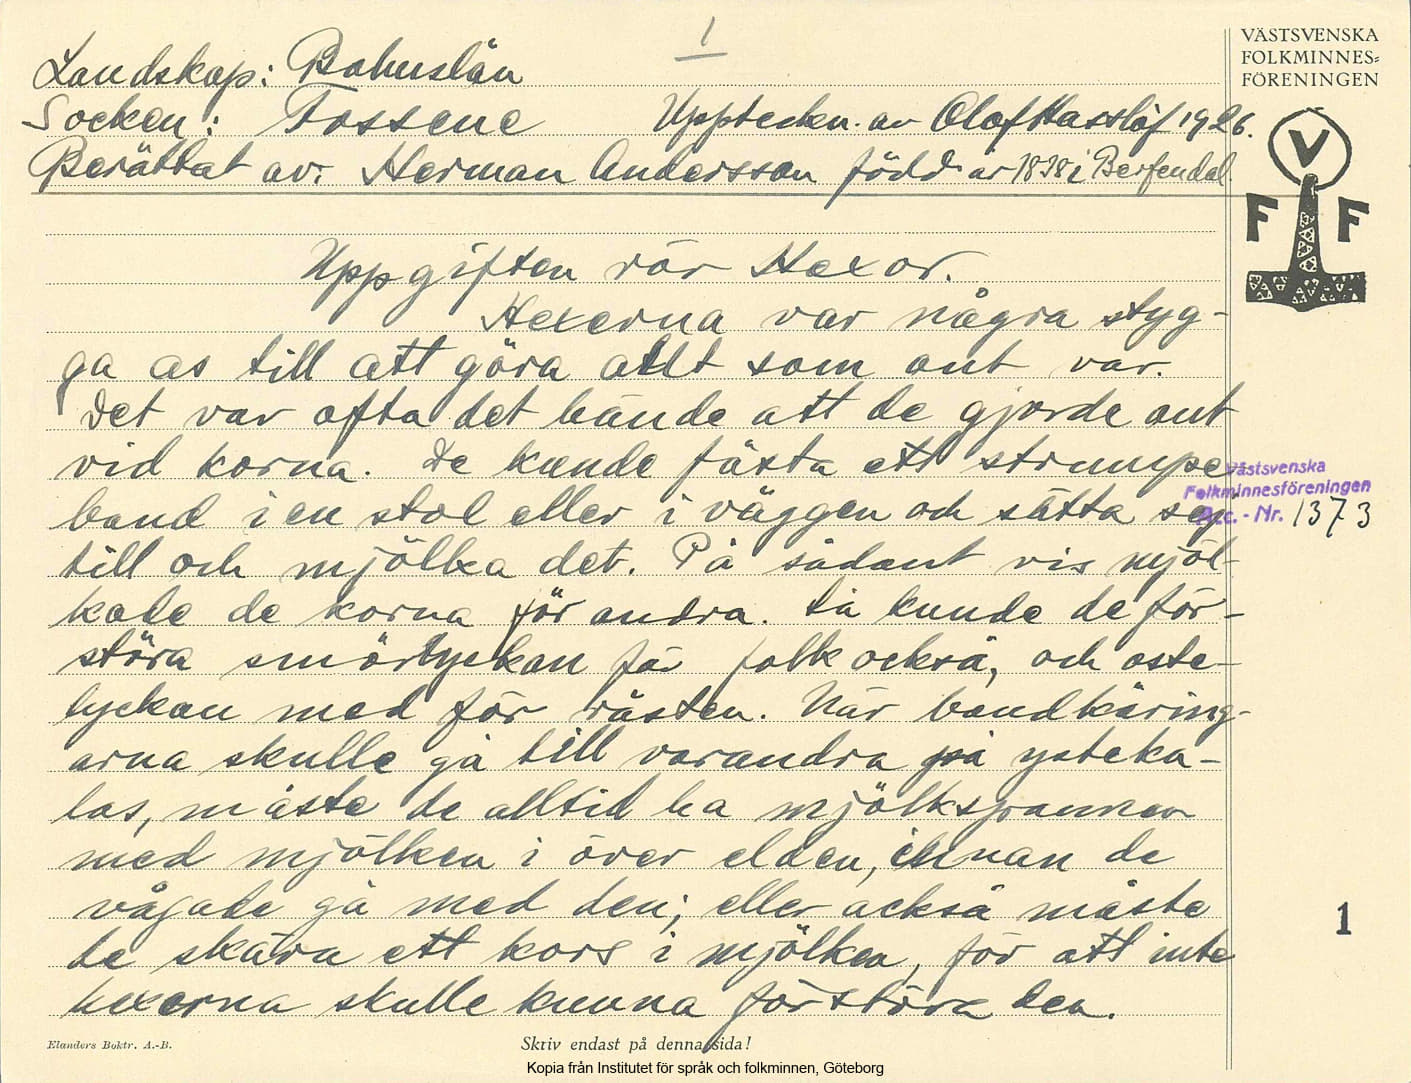 1
VÄSTSVENSKA
FOLKMINNES=
FÖRENINGEN
Landskap: Bohuslän
Socken: Tossene Uppteckn. av Olof Hasslöf 1926.
Berättat av: Herman Andersson född år 1838 i Berfendal.
V
F F
Uppgiften rör Hexor.
Hexerna var några styg-
ga as till att göra allt som ont var.
Det var ofta det hände att de gjorde ont
vid korna. De kunde fästa ett strumpe-
band i en stol eller i väggen och sätta sej
till och mjölka det. På sådant vis mjöl-
kade de korna för andra. Så kunde de för-
störa smörlyckan för folk också, och oste-
lyckan med för rästen. När bondkäring-
arna skulle gå till varandra på ysteka-
las, måste de alltid ha mjölkspannen
med mjölken i över elden, innan de
vågade gå med den; eller också måste
de skära ett kors i mjölken, för att inte
hexerna skulle kunna förstöra den.
Västsvenska
Folkminnesföreningen
Acc. - Nr. 1373
1
Elanders Boktr. A.-B.
Skriv endast på denna sida!
Kopia från Institutet för språk och folkminnen, Göteborg